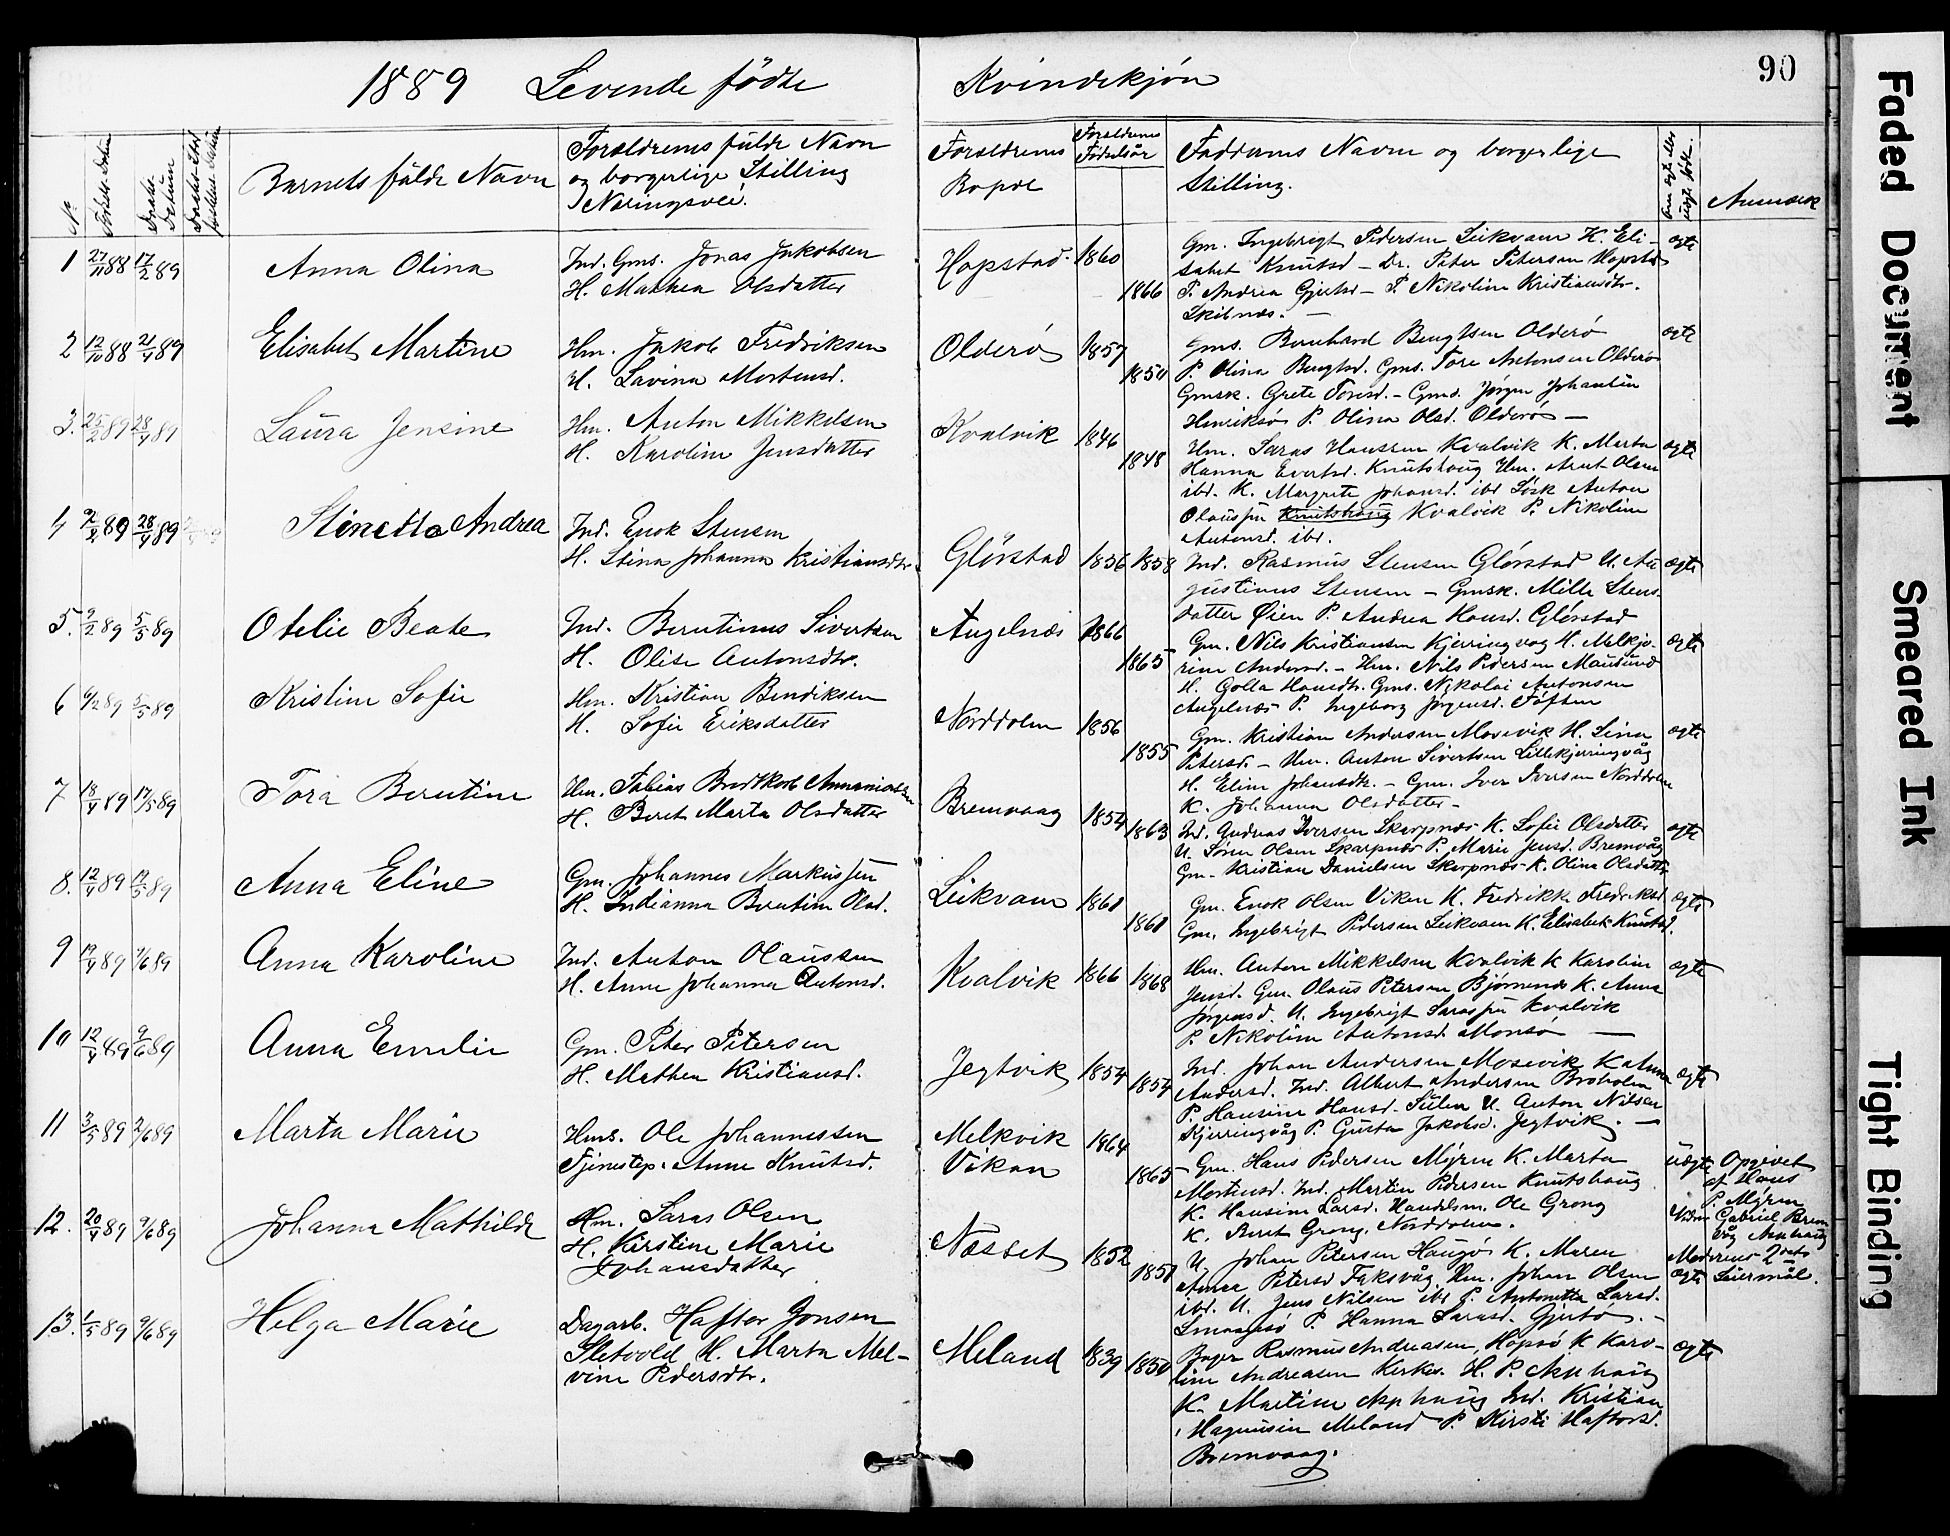 1889 Levende fødte Kvindekjøn
90
No
Fødsels-Datum
Daabs-Datum
Barnets fulde Navn
Forældrenes fulde Navn
og borgerlige Stilling
Næringsvei.
Forældrenes
Bopæl
Forældrenes
Fødselsår
Faddernes Navne og borgerlige
Stilling.
Om ægte eller
uægte født.
Anmærk
1 27/11 88 17/2 89
Anna Olina
Ind. Gms. Jonas Jakobsen
H. Mathea Olsdatter
Hopstad 1860
1866
Gm. Ingebrigt Pedersen Leikvam K. Eli-
sabet Knutsd - Dr. Peter Petersen Hopstad
P. Andrea Gjertsd - P. Nikoline Kristiansdtr.
Skibnes. -
ægte
2 12/10 88 21/4 89
Elisabet Martine
Hm. Jakob Fredriksen
H. Lavina Mortensd.
Olderø 1857
1850
Gms. Bernhard Bengtsen Olderø
P. Olina Bengtsd. Gms. Tore Antonsen Olderø
Gmsk. Grete Toresd. - Gms. Jørgen Johansen
Henriksø P. Olina Olsd. Olderø -
ægte
3. 25/2 89 28/4 89
Laura Jensine
Hm. Anton Mikkelsen
H. Karoline Jensdatter
Kvalvik 1846
1848
Hm. Saras Hanssen Kvalvik K. Marta
Hanna Evertsd. Knutshaug Hm. Arnt Olsen
ibd. K. Margrete Johansd. ibd Søsk Anton
Olaussen Knutshaug Kvalvik P. Nikoline
Antonsd. ibd.
ægte
4 2/2 89 28/4 89
Stinetta Andrea
Ind. Enok Stensen
H. Stina Johanna Kristiansdtr.
Glørstad 1856 1858
Ind. Rasmus Stensen Glørstad U. Au-
gustinus Stensen - Gmsk. Mille Stens-
datter Øien P. Andrea Hansd. Glørstad
ægte
5. 9/2 89 5/5 89
Otelie Beate
Ind. Berntinus Sivertsen
H. Olise Antonsdtr.
Angelnæs 1866
1865
Gm. Nils Kristiansen Kjerringvåg H. Melkjo-
rine Andersd. - Hm. Nils Pedersen Mausund
H. Golla Hansdtr. Gms. Nikolai Antonsen
Angelnæs P. Ingeborg Jørgensd. Toften
ægte
6 9/2 89 5/5 89
Kristine Sofie
Hm. Kristian Bendiksen
H. Sofie Eriksdatter
Norddolm 1856
1855
Gm. Kristian Andersen Mosevik H. Lina
Petersd. - Hm. Anton Sivertsen Lillekjerringvåg
H. Eline Johansdtr. - Gm. Iver Iversen Norddolm
K. Johanna Olsdatter -
ægte
7 18/4 89 17/5 89
Tora Berntine
Hm. Tobias Brodtkorb Annaniassen
H. Beret Marta Olsdatter
Bremvaag 1854
1863
Ind. Andreas Iversen Skarpnæs K. Sofie Olsdatter
U. Søren Olsen Skarpnæs P. Marie Jensd. Bremvåg
Gm. Kristian Danielsen Skarpnæs K. Olina Olsdatter
ægte
8. 12/4 89 19/5 89
Anna Eline
Gm. Johannes Markussen
H. Indianna Berntine Olsd.
Leikvam 1861
1861
Gm. Enok Olsen Viken K. Fredrikke Fredriksd
Gm. Ingebrigt Pedersen Leikvam K. Elisabet Knutsd.
ægte
9 19/4 89 9/6 89
Anna Karoline
Ind. Anton Olaussen
H. Anne Johanna Antonsd.
Kvalvik 1866 1868
Hm. Anton Mikkelsen Kvalvik K. Karoline
Jensd. Gm. Olaus Petersen Bjørnnes K. Anna
Jørgensd. U. Ingebrigt Sarassen Kvalvik
P. Nikoline Antonsd. Monsø -
ægte
10 12/4 89 9/6 89
Anna Emelie
Gm. Peter Petersen
H. Mathea Kristiansd.
Jegtvik 1854
1854
Ind. Johan Andersen Mosevik K. Anna
Andersd. Ind. Albert Andersen Broholm
P. Hansine Hansd. Sulen U. Anton Nilsen
Kjerringvåg P. Gusta Jakobsd. Jegtvik. -
ægte
11 3/5 89 2/6 89
Marta Marie
Hms. Ole Johannessen
Tjenestep. Anne Knutsd.
Melkvik
Vikan
1864
1865
Gm. Hans Pedersen Myren K. Marta
Mortensd. Ind. Martin Pedersen Knutshaug
K. Hansine Larsd. Handelsm. Ole Grong
K. Beret Grong, Norddolm.
uægte Opgivet
af Hans
P. Myren
Gabriel Brem-
våg Aunhaug
Moderens 2det
Leiermål.
12. 20/4 89 9/6 89
Johanna Mathilde
Hm. Saras Olsen
H. Kirstine Marie
Johansdatter
Næsset 1852
1851
U. Johan Petersen Haugø K. Maren
Anna Petersd Faksvåg. Hm. Johan Olsen
ibd. U. Jens Nilsen ibd P. Antonetta Larsd.
Smaagesø P. Hanna Sarasd. Gjertø. -
ægte
13. 1/5 89 9/6 89
Helga Marie
Dagarb. Haftor Jonsen
Sletvold H. Marta Mel-
vine Pedersdtr.
Meland 1839 1850
Bager Rasmus Andreasen, Hopsø K. Karo-
line Andreasen Kerkes. H. P. Aunhaug
K. Martine Aunhaug Ind. Kristian
Magnussen Meland P. Kirsti Haftorsd.
Bremvaag.
ægte
Faded Document
Smeared Ink
Tight Binding